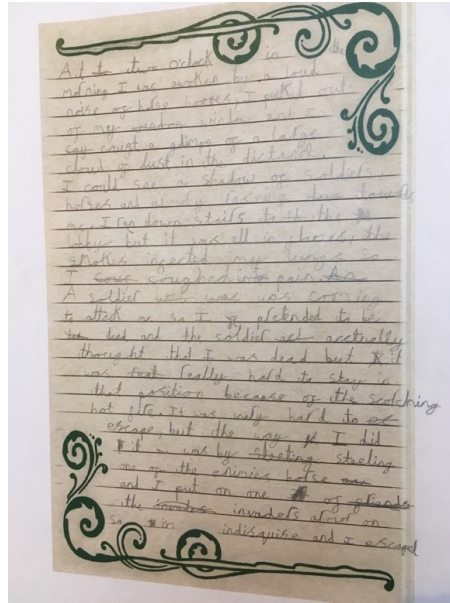 At to two o'clock in the
morning I was awoken by a loud
noise of horse hooves, I peeked out
of my window and I
say caught a glimps of a large
cloud of dust in the distand.
I could see a shadow of soldiers,
horses and rushing down towards
me. I run down stairs to the
lobby but it was all in flames, the
smokes ingected my lungs so
I coughed into pain. An
A soldier was was coming
to attack me so I pretended to be
dead and the soldier act acctually
thought that I was dead but it
was really hard to stay in
that position because of the scotching
hot fire. It was very hard to
escape, but the way I did
it was by steeling
one of the enimies horse
and I put on one of
the invaders armer on
so in indisguise and I escaped